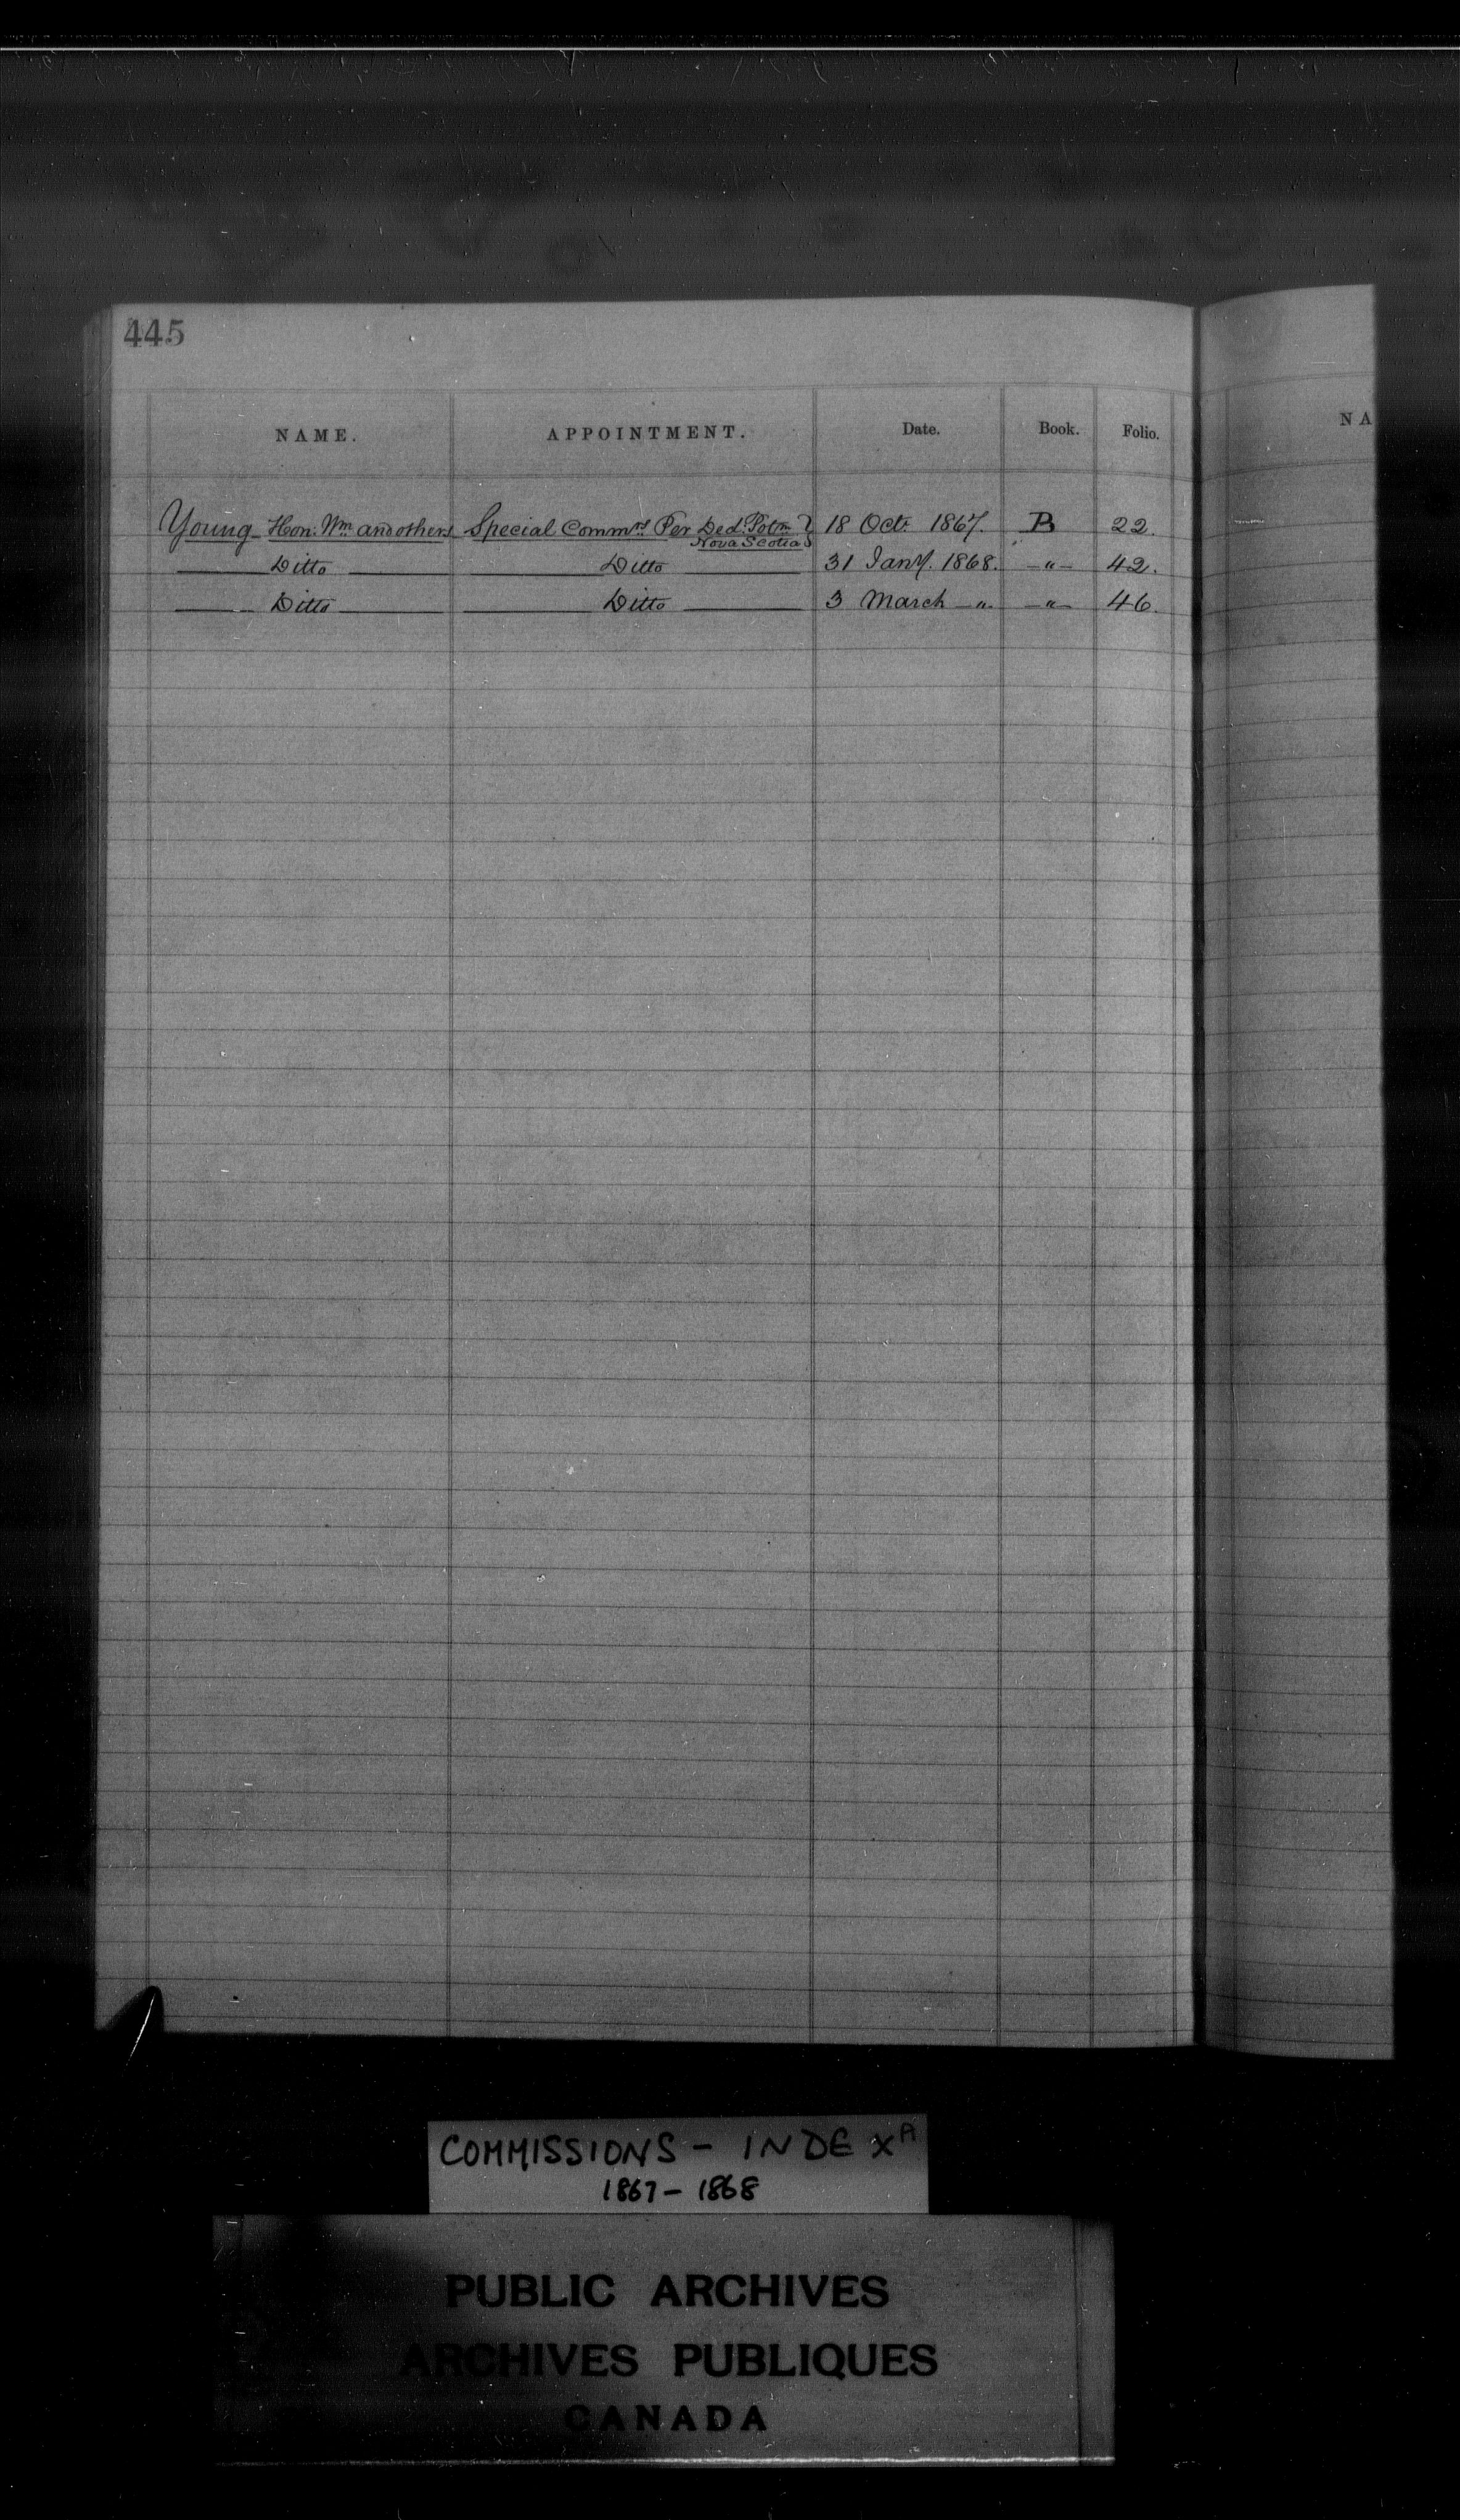 445
NAME. APPOINTMENT. Date. Book. Folio.
NA
Young Hon: Wm and others Special Commrs Per Ded. Potm 18 Oct: 1867. B 22.
Nova Scotia
Ditto Ditto 31 Jany. 1868. -"- 42.
Ditto Ditto 3 March -"- -"- 46.
COMMISSIONS - INDEX A
1867 - 1868
PUBLIC ARCHIVES
ARCHIVES PUBLIQUES
CANADA